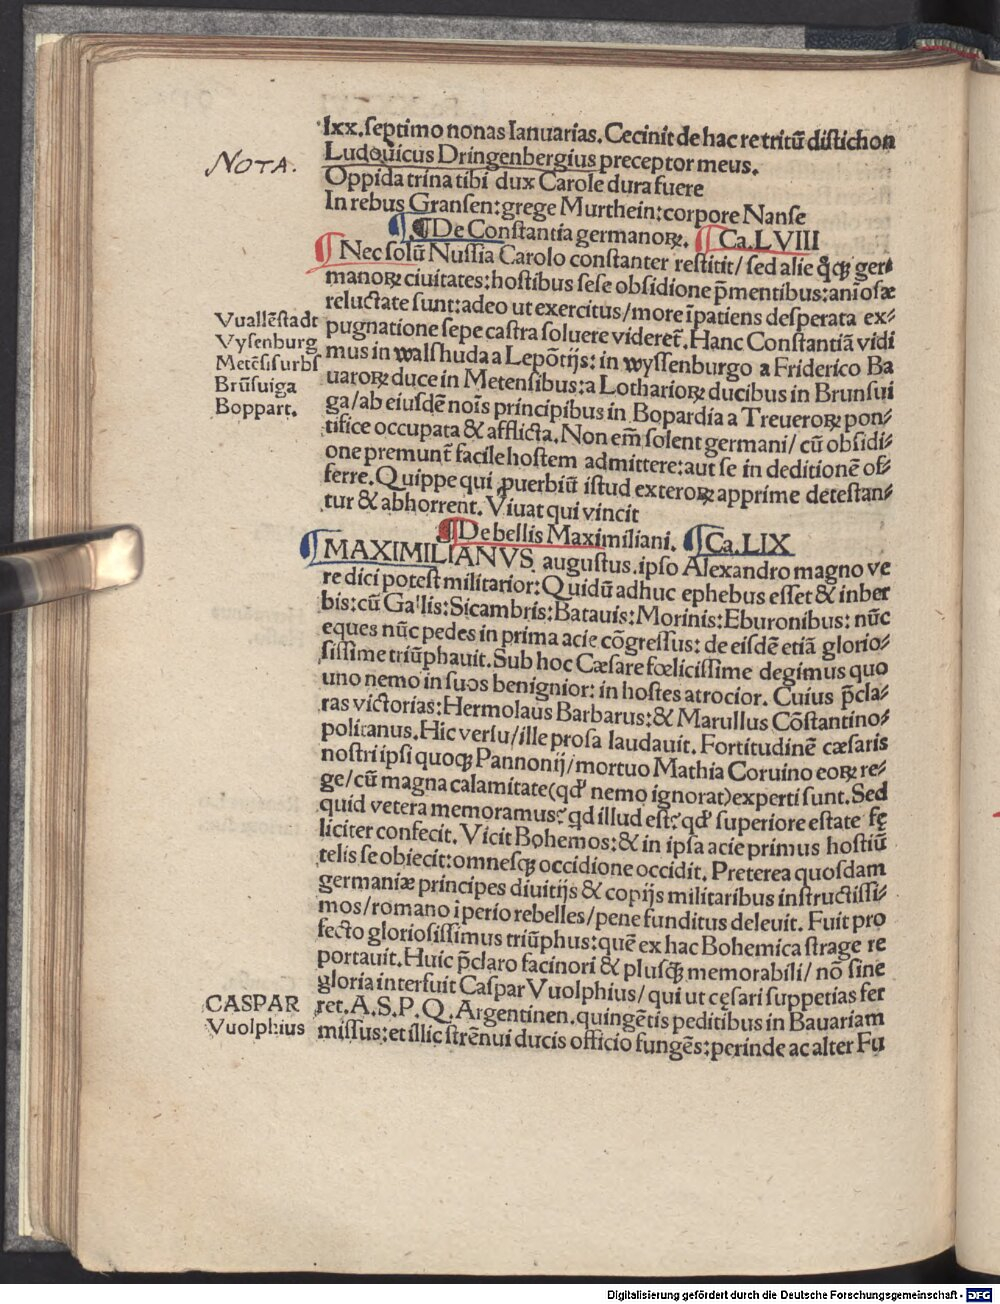 lxx.septimo nonas Ianuarias.Cecinit de hac re tritū distichon
NOTA.
Ludouicus Dringenbergius preceptor meus.
Oppida trina tibi dux Carole dura fuere
In rebus Gransen:grege Murthein:corpore Nanse
¶De Constantia germanoꝝ. ¶Ca.LVIII
¶Nec solū Nussia Carolo constanter restitit/ sed alie q̊cꝫ ger⸗
manoꝝ ciuitates:hostibus sese obsidione p̄mentibus:aniōsæ
reluctate sunt:adeo ut exercitus/more īpatiens desperata ex⸗
Vuallēstadt
Vysenburg
Metēsis urbs
Brūsuiga
Boppart.
pugnatione sepe castra soluere videret̄.Hanc Constantiā vidi
mus in walshuda a Lepōtijs: in wyssenburgo a Friderico Ba
uaroꝝ duce in Metensibus:a Lotharioꝝ ducibus in Brunsui
ga/ab eiusdē nois̄ principibus in Bopardia a Treueroꝝ pon⸗
tifice occupata & afflicta.Non em̄ solent germani/ cū obsidi⸗
one premunt̄ facile hostem admittere:aut se in deditionē of⸗
ferre.Quippe qui ꝓuerbiū istud exteroꝝ apprime detestan⸗
tur & abhorrent. Viuat qui vincit
¶De bellis Maximiliani. ¶Ca.LIX
¶MAXIMILIANVS augustus.ipso Alexandro magno ve
re dici potest militarior:Quidū adhuc ephebus esset & inber
bis:cū Gallis:Sicambris:Batauis:Morinis:Eburonibus: nūc
eques nūc pedes in prima acie cōgressus: de eisdē etiā glorio⸗
sissime triūphauit.Sub hoc Cæsare fœlicissime degimus quo
uno nemo in suos benignior: in hostes atrocior. Cuius p̄cla⸗
ras victorias:Hermolaus Barbarus:& Marullus Cōstantino⸗
politanus.Hic versu/ille prosa laudauit. Fortitudinē cæsaris
nostri ipsi quoqꝫ Pannonij/mortuo Mathia Coruino eoꝝ re⸗
ge/cū magna calamitate(qd' nemo ignorat)experti sunt.Sed
quid vetera memoramus? qd illud est? qd' superiore estate fę
liciter confecit. Vicit Bohemos:& in ipsa acie primus hostiū
telis se obiecit:omnesqꝫ occidione occidit. Preterea quosdam
germaniæ principes diuitijs & copijs militaribus instructissi⸗
mos/romano īperio rebelles/pene funditus deleuit. Fuit pro
fecto gloriosissimus triūphus:quē ex hac Bohemica strage re
portauit.Huic p̄claro facinori & plusqꝫ memorabili/ nō sine
gloria interfuit Caspar Vuolphius/ qui ut cęsari suppetias fer
CASPAR
Vuolphius
ret.A.S.P.Q.Argentinen.quingētis peditibus in Bauariam
missus:et illic strēnui ducis officio fungēs:perinde ac alter Fu
Digitalisierung gefördert durch die Deutsche Forschungsgemeinschaft - DFG